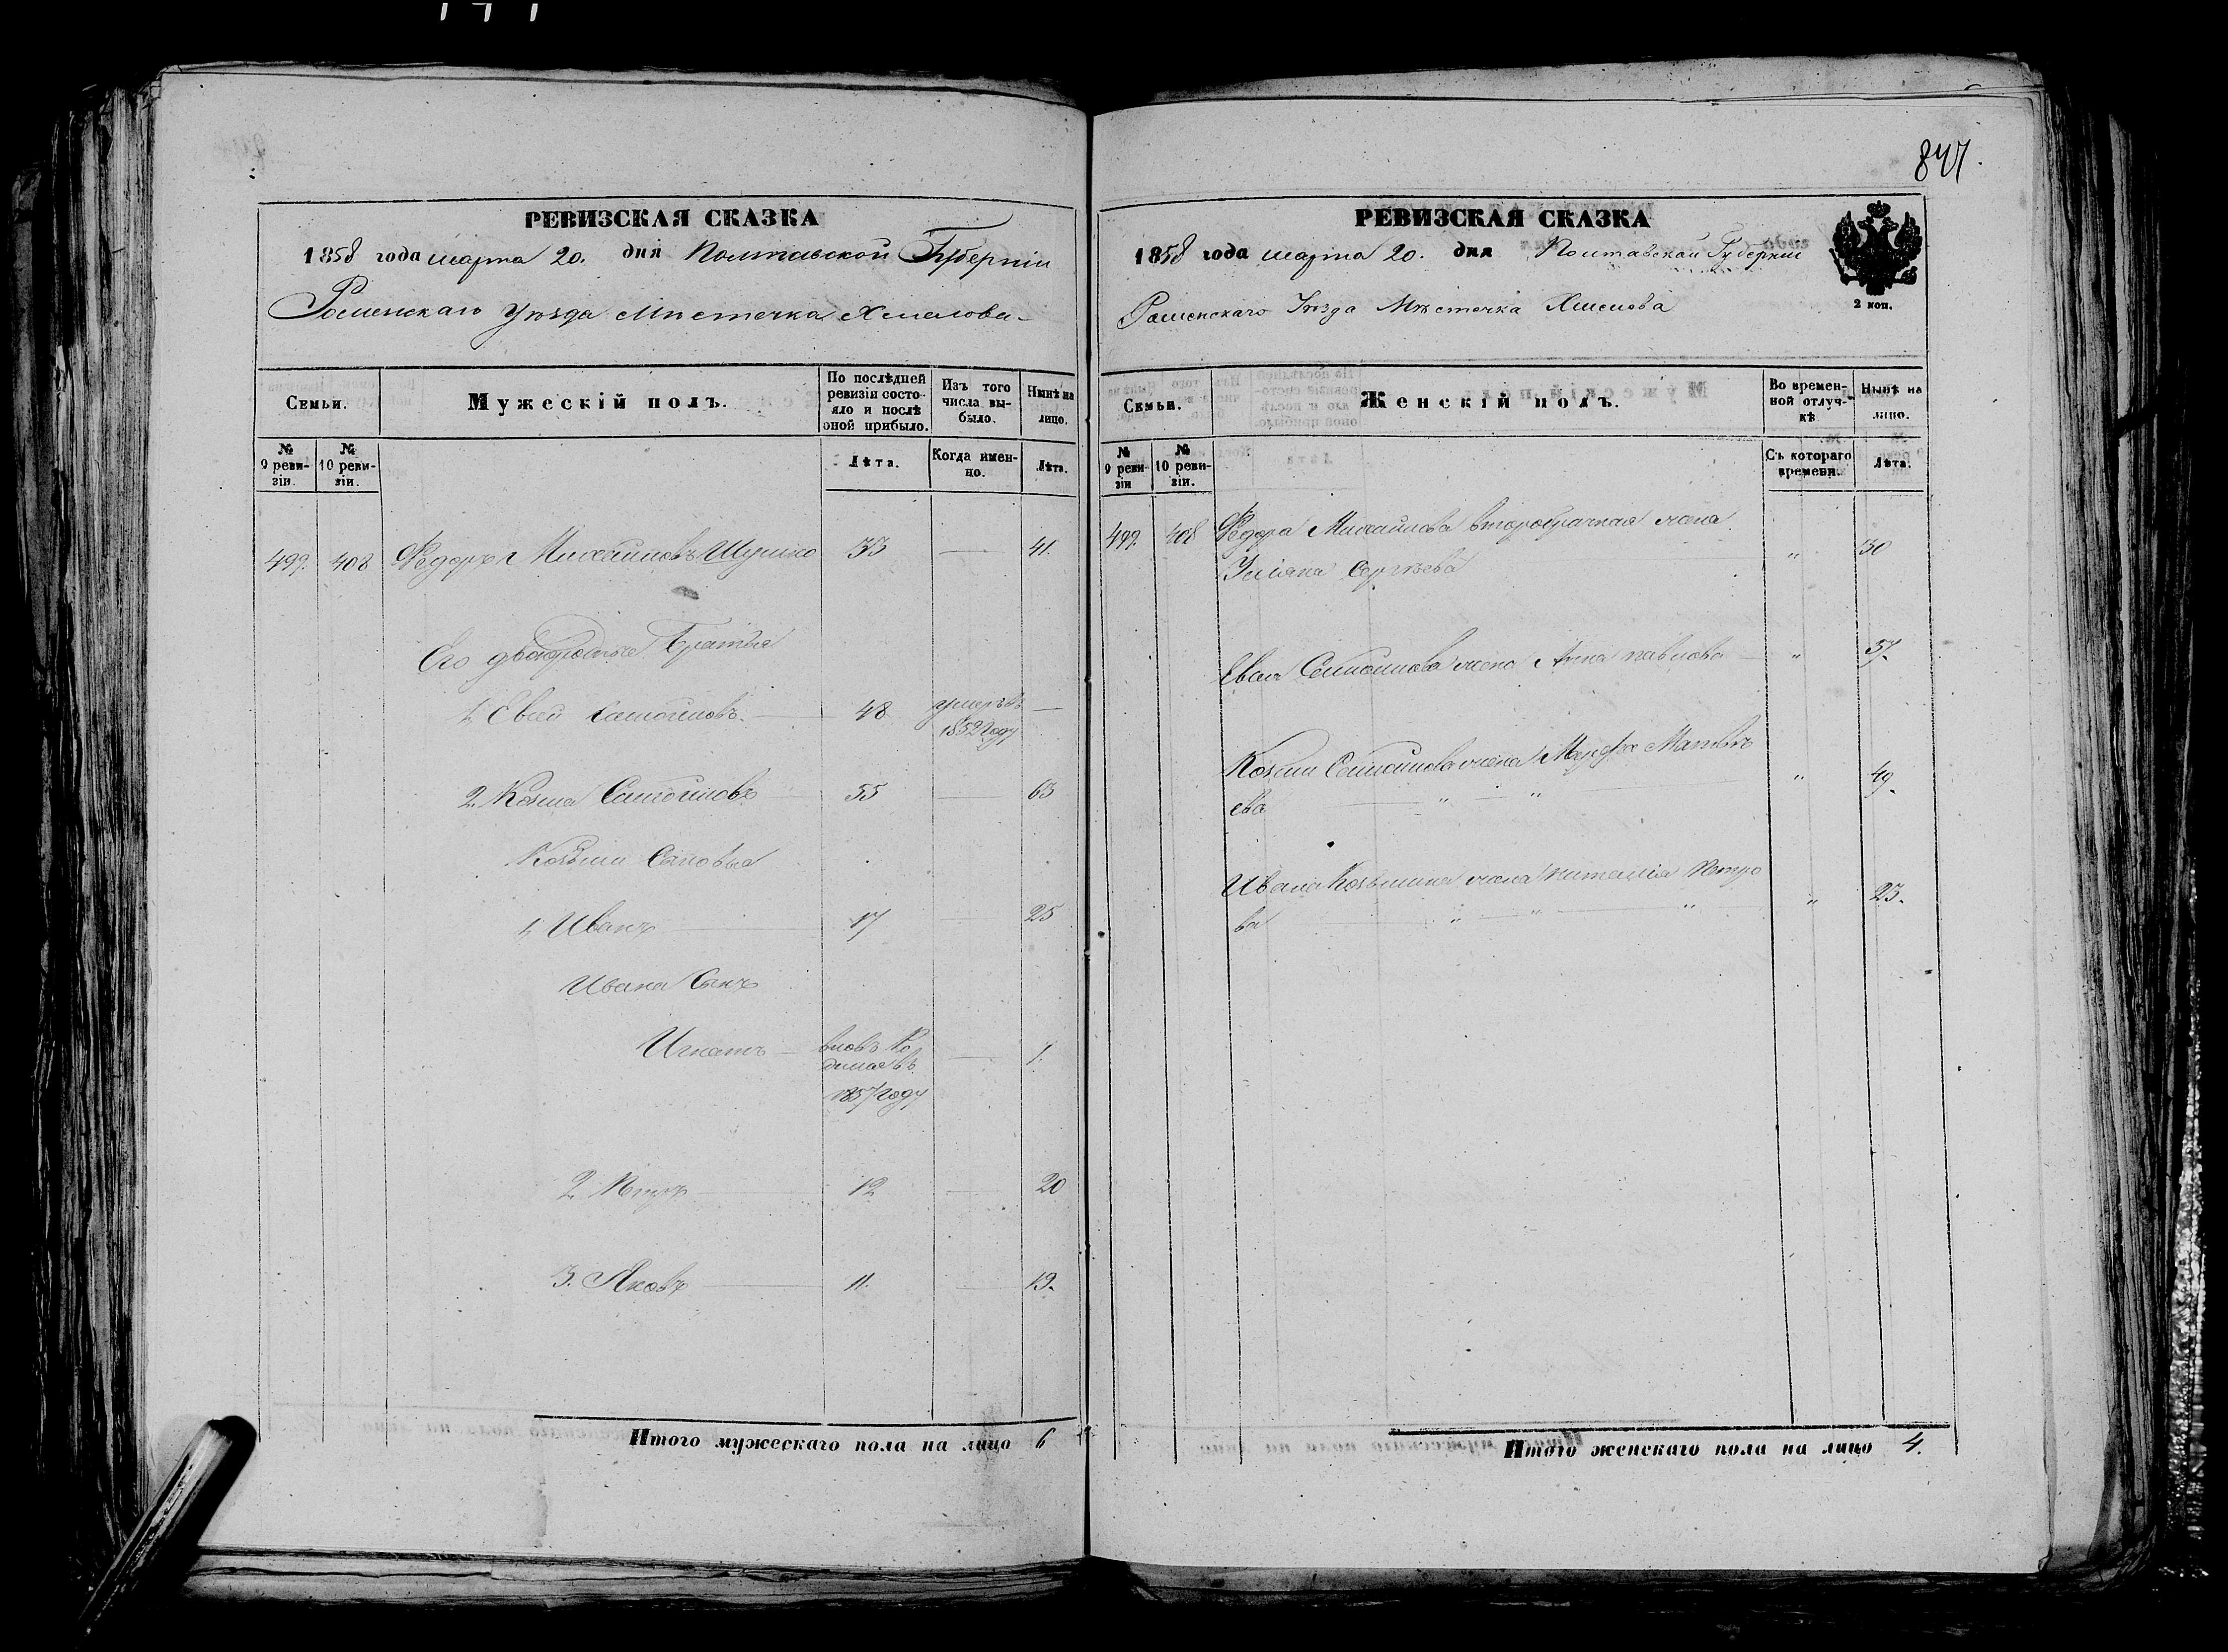 847.
РЕВИЗСКАЯ СКАЗКА
1858 года марта 20. дня Полтавской Губерніи
Роменскаго Уѣзда Мѣстечка Хмелова
Семьи.
Мужескій полъ.
По послѣдней ревизіи состояло и послѣ оной прибыло.
Изъ того числа выбыло.
Нынѣ на лицо.
№ 9 ревизіи.
№ 10 ревизіи.
Лѣта.
Когда именно.
Лѣта.
499. 408 Федоръ Михайловъ 33 — 41.
Его двоюродные Братья
1. Евсей Самойловъ. — 48 умеръ въ —
1852 году
2. Козма Самойловъ — 55 — 63
Козьми Сыновья
1. Иванъ — 17 — 25
Ивана Сынъ
Игнатъ — вновь Ро — 1.
дился въ
1857 году
2. Петръ — 12 — 20
3. Яковъ — 11. — 19.
Итого мужескаго пола на лицо 6
РЕВИЗСКАЯ СКАЗКА
1858 года марта 20. дня Полтавской Губерніи
Роменскаго Уѣзда Мѣстечка Хмелова
2 коп.
Семьи.
Женскій полъ.
Во временной отлучкѣ
Нынѣ на лицо.
№ 9 ревизіи
№ 10 ревизіи.
Съ котораго времени.
Лѣта.
499. 408 Федора Михайлова второбрачная жена
Уліяна Сергѣева „ 30
Евсея Самойлова жена Анна павлова — „ 57.
Козьми Самойлова жена Марфа Матвѣ
ева — „ — „ — „ 49.
Ивана Козьмина жена Наталія Петро
ва — „ — „ — „ „ 23.
Итого женскаго пола на лицо 4.